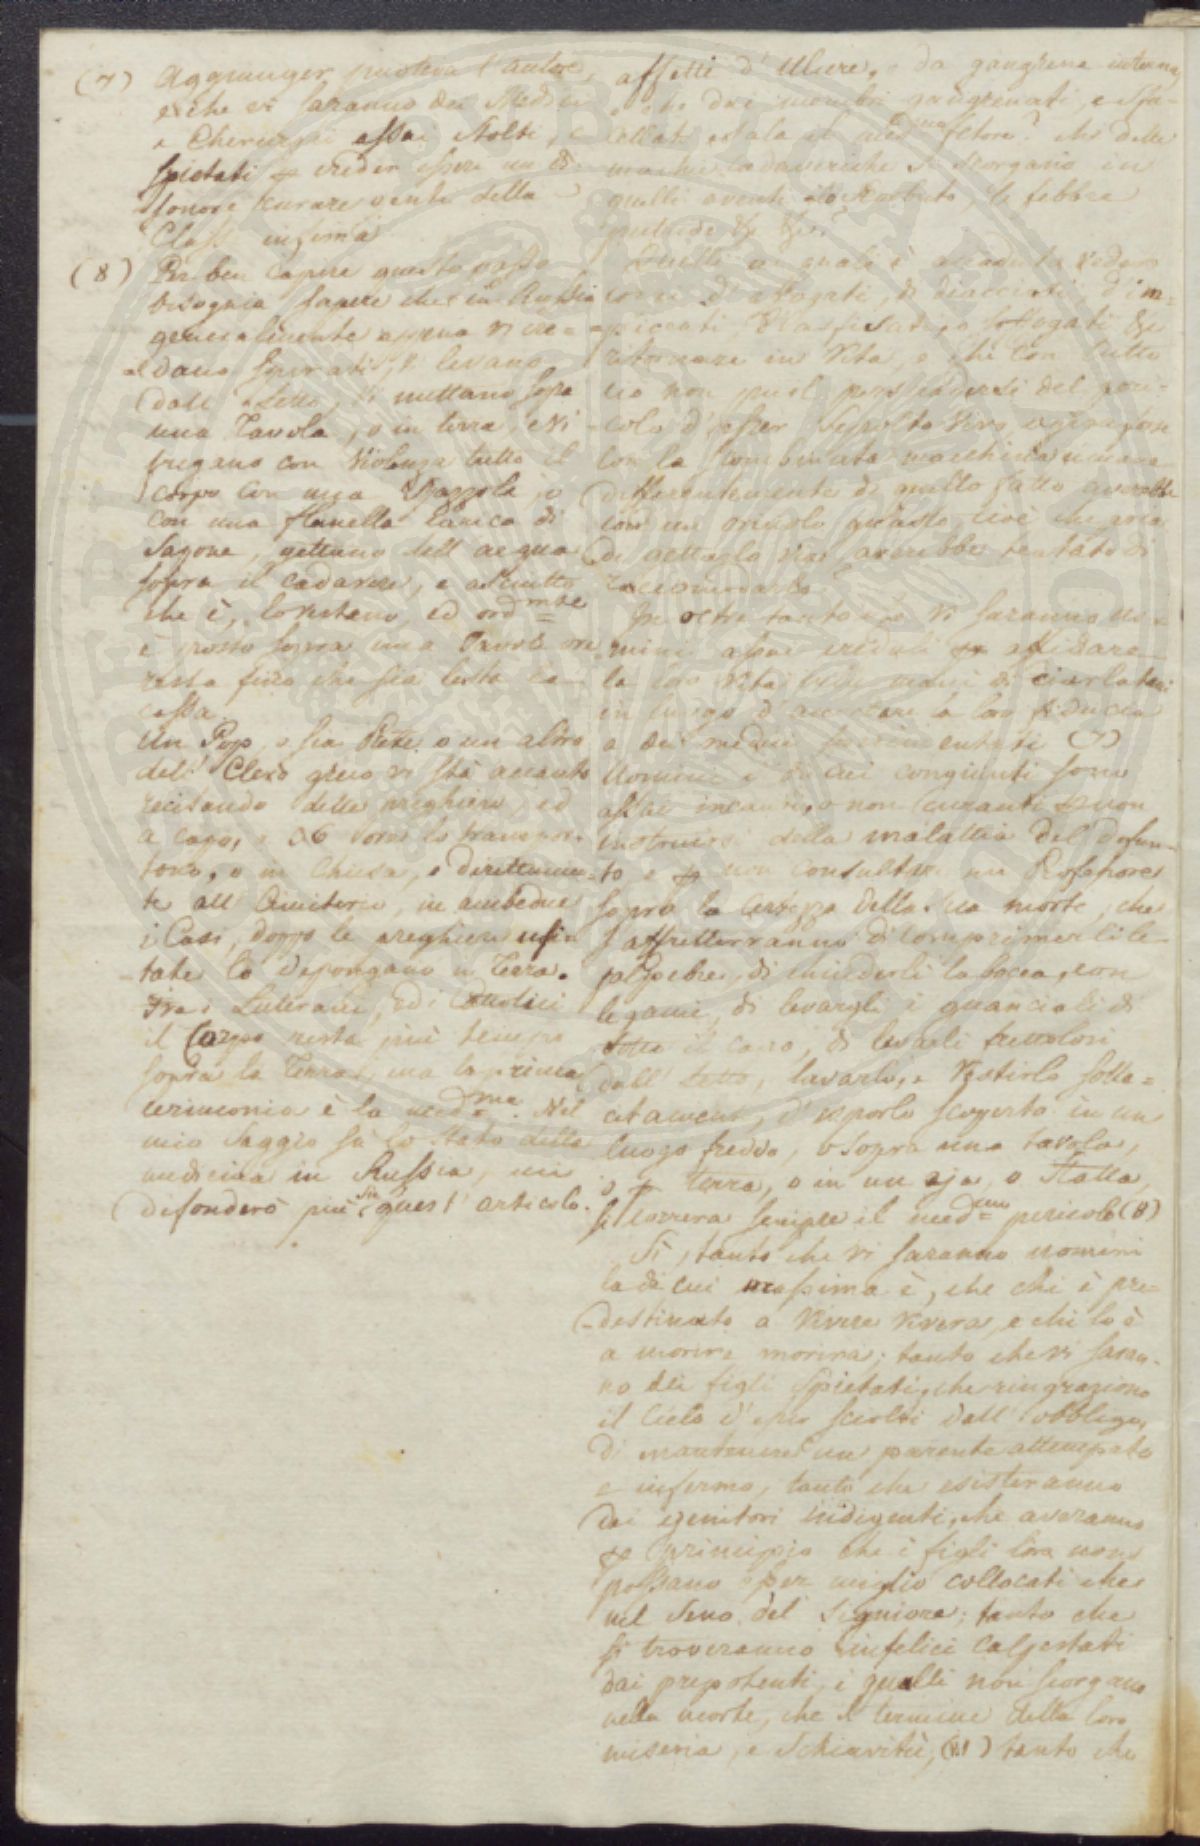 (7) Aggiunger poteva l'autore,
e che vi saranno dei Medici
e Cherurghi assai stolti, e
spietati per creder essere un di-
sonore curare gente della
Class infima
(8) Per ben capire questo passo
bisognia sapere che in Russia
generalmente appena vi cre=
dano spirati, vi levano
dall letto, vi mettano sopra
una Tavola, o in terra, e vi
fregano con violenza tutto il
corpo con una Spazzola, o
con una flanella carica di
Sapone, gettano dell acqua
sopra il cadavere, e asciutto
che è, lo vestono, ed ord.mte
è posto sopra una Tavola ove
resta fino che sia lesta la
cassa.
Un Pop, o sia Prete, o un altro
del' Clero greco vi stà accanto
recitando delle preghiere, ed
a capo, 36 ore lo transpor-
tono, o in Chiesa, o direttamen-
te all' Cimiterio, in ambedue
i Casi, doppo le preghiere usi-
tate lo depongano in Terra.
Fra i Luterani, ed i Cattolici
il Corpo resta più tempo
sopra la Terra, ma la prima
cerimonia è la med.ma. Nel
mio Saggio sù lo stato della
medicina in Russia, mi
difonderò più su quest' articolo.
affetti d' Ulcere, o da gangrena interna,
o che dai membri gangrenati, e sfa-
cellati esala il med.mo fetore? che delle
machie cadaveriche si scorgano in
quelli aventi lo scorbuto, le febbre
putride &c &c?
Quelli ai quali è accaduto veder
corpi d' affogati, di diacciati, d' im=
piccati, d'asfissiati, o soffogati &c
ritornare in Vita, e chi con tutto
ciò non puol persuadersi del peri-
colo d' esser sepolto vivo, agirà forse
con la scombinata macchina umana
differentemente di quello fatto averebbe
con un oriuolo guasto, cioè che pria
di gettarlo via, averebbe tentato di
raccomodarlo?
In oltre tanto che vi saranno uo-
mini assai creduli per affidare
la loro vita nelle mani di ciarlatani
in luogo d' accordare la loro fiducia
a dei medici sperimentati (7)
Uomini e di cui congiunti sono
assai incauti, o non curanti per non
instruirsi della malattia del defun-
to e per non consultare un Professore
sopra la certezza della sua morte, che
s'affretterranno di comprimerli le
palpebre, di chiuderli la bocca, con
legami, di levargli i guanciali di
sotto il capo, di levarli frettolosi
dall' letto, lavarlo, e Vestirlo solle=
citamente, d' esporlo scoperto in un
luogo freddo, o sopra una tavola,
o per terra, o in un aja, o Stalla,
si correra sempre il med.mo pericolo (8)
Sì, tanto che vi saranno uomini
la di cui massima è, che chi è pre=
destinato a vivere vivera, e chi lo è
a morire morirà; tanto che vi saran-
no dei figli spietati, che ringraziono
il Cielo d' esser sciolti dall' obbligo,
di mantenere un parente attempato
e infermo, tanto che esisteranno
dei genitori indigenti, che averanno
per principio che i figli loro non
possano esser meglio collocati che
nel Seno del Signiore; tanto che
si troveranno infelici calpestati
dai prepotenti, i quelli non scorgano
nella morte, che il termine della loro
miseria, e Schiavitù, tanto che